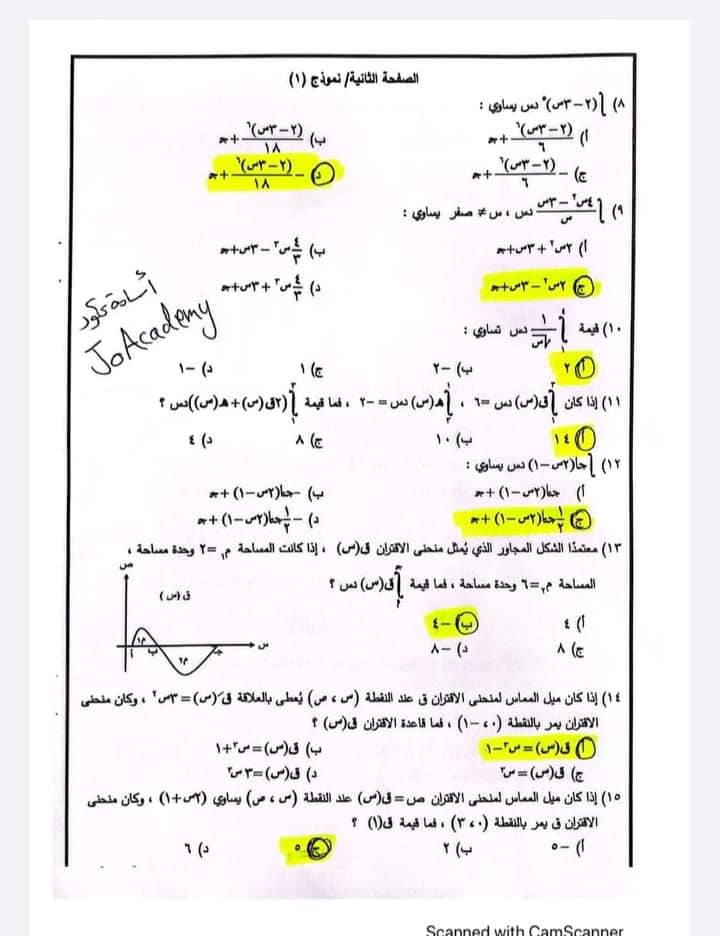 الصفحة الثانية/ نموذج (١)
٨) ∫(٢-٣س)° دس يساوي :
أ) (٢-٣س)٦/٦ + جـ ب) (٢-٣س)٦/١٨ + جـ
ج) -(٢-٣س)٦/٦ + جـ د) -(٢-٣س)٦/١٨ + جـ
٩) ∫ (٤س٢-٣س)/س دس ، س ≠ صفر يساوي :
أ) ٢س٢+٣س+جـ ب) ٤/٣ س٣-٣س+جـ
ج) ٢س٢-٣س+جـ د) ٤/٣ س٣+٣س+جـ
١٠) قيمة ∫ ١/√س دس تساوي :
أ) ٢ ب) -٢ ج) ١ د) -١
١١) إذا كان ∫ق(س) دس =٦ ، ∫هـ(س) دس = -٢ ، فما قيمة ∫(٢ق(س)+هـ(س))دس ؟
أ) ١٤ ب) ١٠ ج) ٨ د) ٤
١٢) ∫جا(٢س-١) دس يساوي :
أ) جتا(٢س-١) +جـ ب) -جتا(٢س-١) +جـ
ج) ١/٢ جتا(٢س-١) +جـ د) -١/٢ جتا(٢س-١) +جـ
١٣) معتمدًا الشكل المجاور الذي يُمثل منحنى الاقتران ق(س) ، إذا كانت المساحة م١ =٢ وحدة مساحة ،
المساحة م٢ =٦ وحدة مساحة ، فما قيمة ∫ق(س) دس ؟
أ) ٤ ب) -٤
ج) ٨ د) -٨
ص
ق (س)
س
م١
م٢
أ ب جـ
١٤) إذا كان ميل المماس لمنحنى الاقتران ق عند النقطة (س ، ص) يُعطى بالعلاقة قَ(س)=٣س٢ ، وكان منحنى
الاقتران يمر بالنقطة (٠ ، -١) ، فما قاعدة الاقتران ق(س) ؟
أ) ق(س)=س٣-١ ب) ق(س)=س٣+١
ج) ق(س)=س٣ د) ق(س)=٣س٣
١٥) إذا كان ميل المماس لمنحنى الاقتران ص=ق(س) عند النقطة (س ، ص) يساوي (٢س+١) ، وكان منحنى
الاقتران ق يمر بالنقطة (٠ ، ٣) ، فما قيمة ق(١) ؟
أ) -٥ ب) ٢ ج) ٥ د) ٦
JoAcademy
Scanned with CamScanner